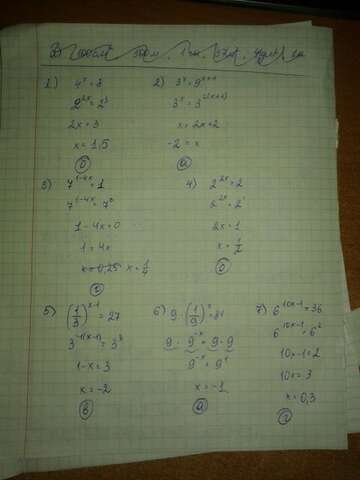 1) 4ˣ = 8
2^{2x} = 2³
2x = 3
x = 1,5
б
2) 3ˣ = 9^{x+1}
3ˣ = 3^{2(x+1)}
x = 2x+2
-2 = x
а
3) 7^{1-4x} = 1
7^{1-4x} = 7⁰
1-4x = 0
1 = 4x
x = 0,25 x = 1/4
г
4) 2^{2x} = 2
2^{2x} = 2¹
2x = 1
x = 1/2
б
5) (1/3)^{x-1} = 27
3^{-1(x-1)} = 3³
1-x = 3
x = -2
в
6) 9·(1/9)ˣ = 81
9·9^{-x} = 9·9
9^{-x} = 9¹
x = -1
а
7) 6^{10x-1} = 36
6^{10x-1} = 6²
10x-1 = 2
10x = 3
x = 0,3
г